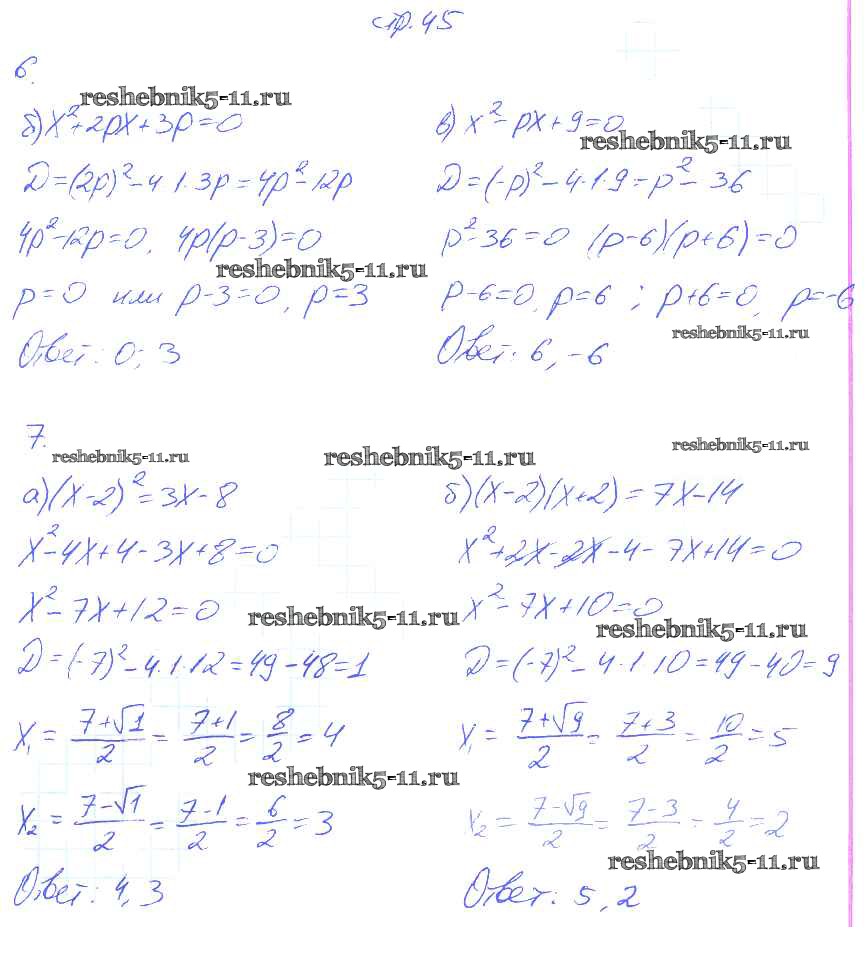 стр. 45
6.
reshebnik5-11.ru
б) x²+2px+3p=0
D=(2p)²-4·1·3p=4p²-12p
4p²-12p=0, 4p(p-3)=0
reshebnik5-11.ru
p=0 или p-3=0, p=3
Ответ: 0; 3
в) x²-px+9=0
reshebnik5-11.ru
D=(-p)²-4·1·9=p²-36
p²-36=0 (p-6)(p+6)=0
p-6=0, p=6 ; p+6=0, p=-6
reshebnik5-11.ru
Ответ: 6, -6
7.
reshebnik5-11.ru
reshebnik5-11.ru
reshebnik5-11.ru
а) (x-2)²=3x-8
x²-4x+4-3x+8=0
x²-7x+12=0
reshebnik5-11.ru
D=(-7)²-4·1·12=49-48=1
x₁=(7+√1)/2=(7+1)/2=8/2=4
reshebnik5-11.ru
x₂=(7-√1)/2=(7-1)/2=6/2=3
Ответ: 4, 3
б) (x-2)(x+2)=7x-14
x²+2x-2x-4-7x+14=0
x²-7x+10=0
reshebnik5-11.ru
D=(-7)²-4·1·10=49-40=9
x₁=(7+√9)/2=(7+3)/2=10/2=5
x₂=(7-√9)/2=(7-3)/2=4/2=2
reshebnik5-11.ru
Ответ: 5, 2